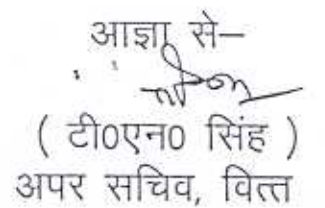 आज्ञा से–
( टी0एन0 सिंह )
अपर सचिव, वित्त